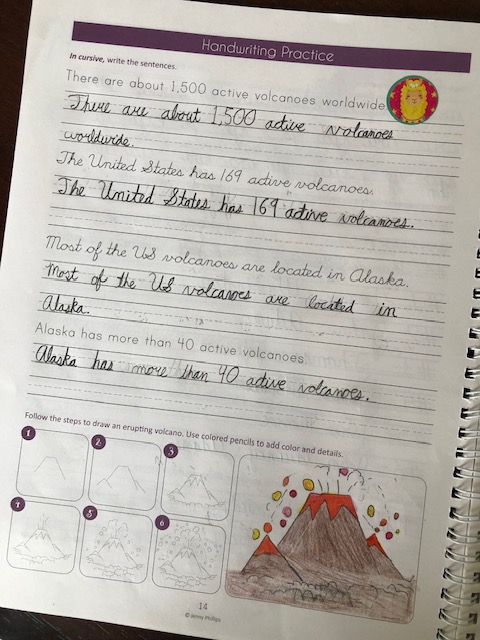 Handwriting Practice
In cursive, write the sentences.
There are about 1,500 active volcanoes worldwide
There are about 1,500 active volcanoes
worldwide.
The United States has 169 active volcanoes.
The United States has 169 active volcanoes.
Most of the US volcanoes are located in Alaska.
Most of the US volcanoes are located in
Alaska.
Alaska has more than 40 active volcanoes.
Alaska has more than 40 active volcanoes.
Follow the steps to draw an erupting volcano. Use colored pencils to add color and details.
1 2 3
4 5 6
14
© Jenny Phillips